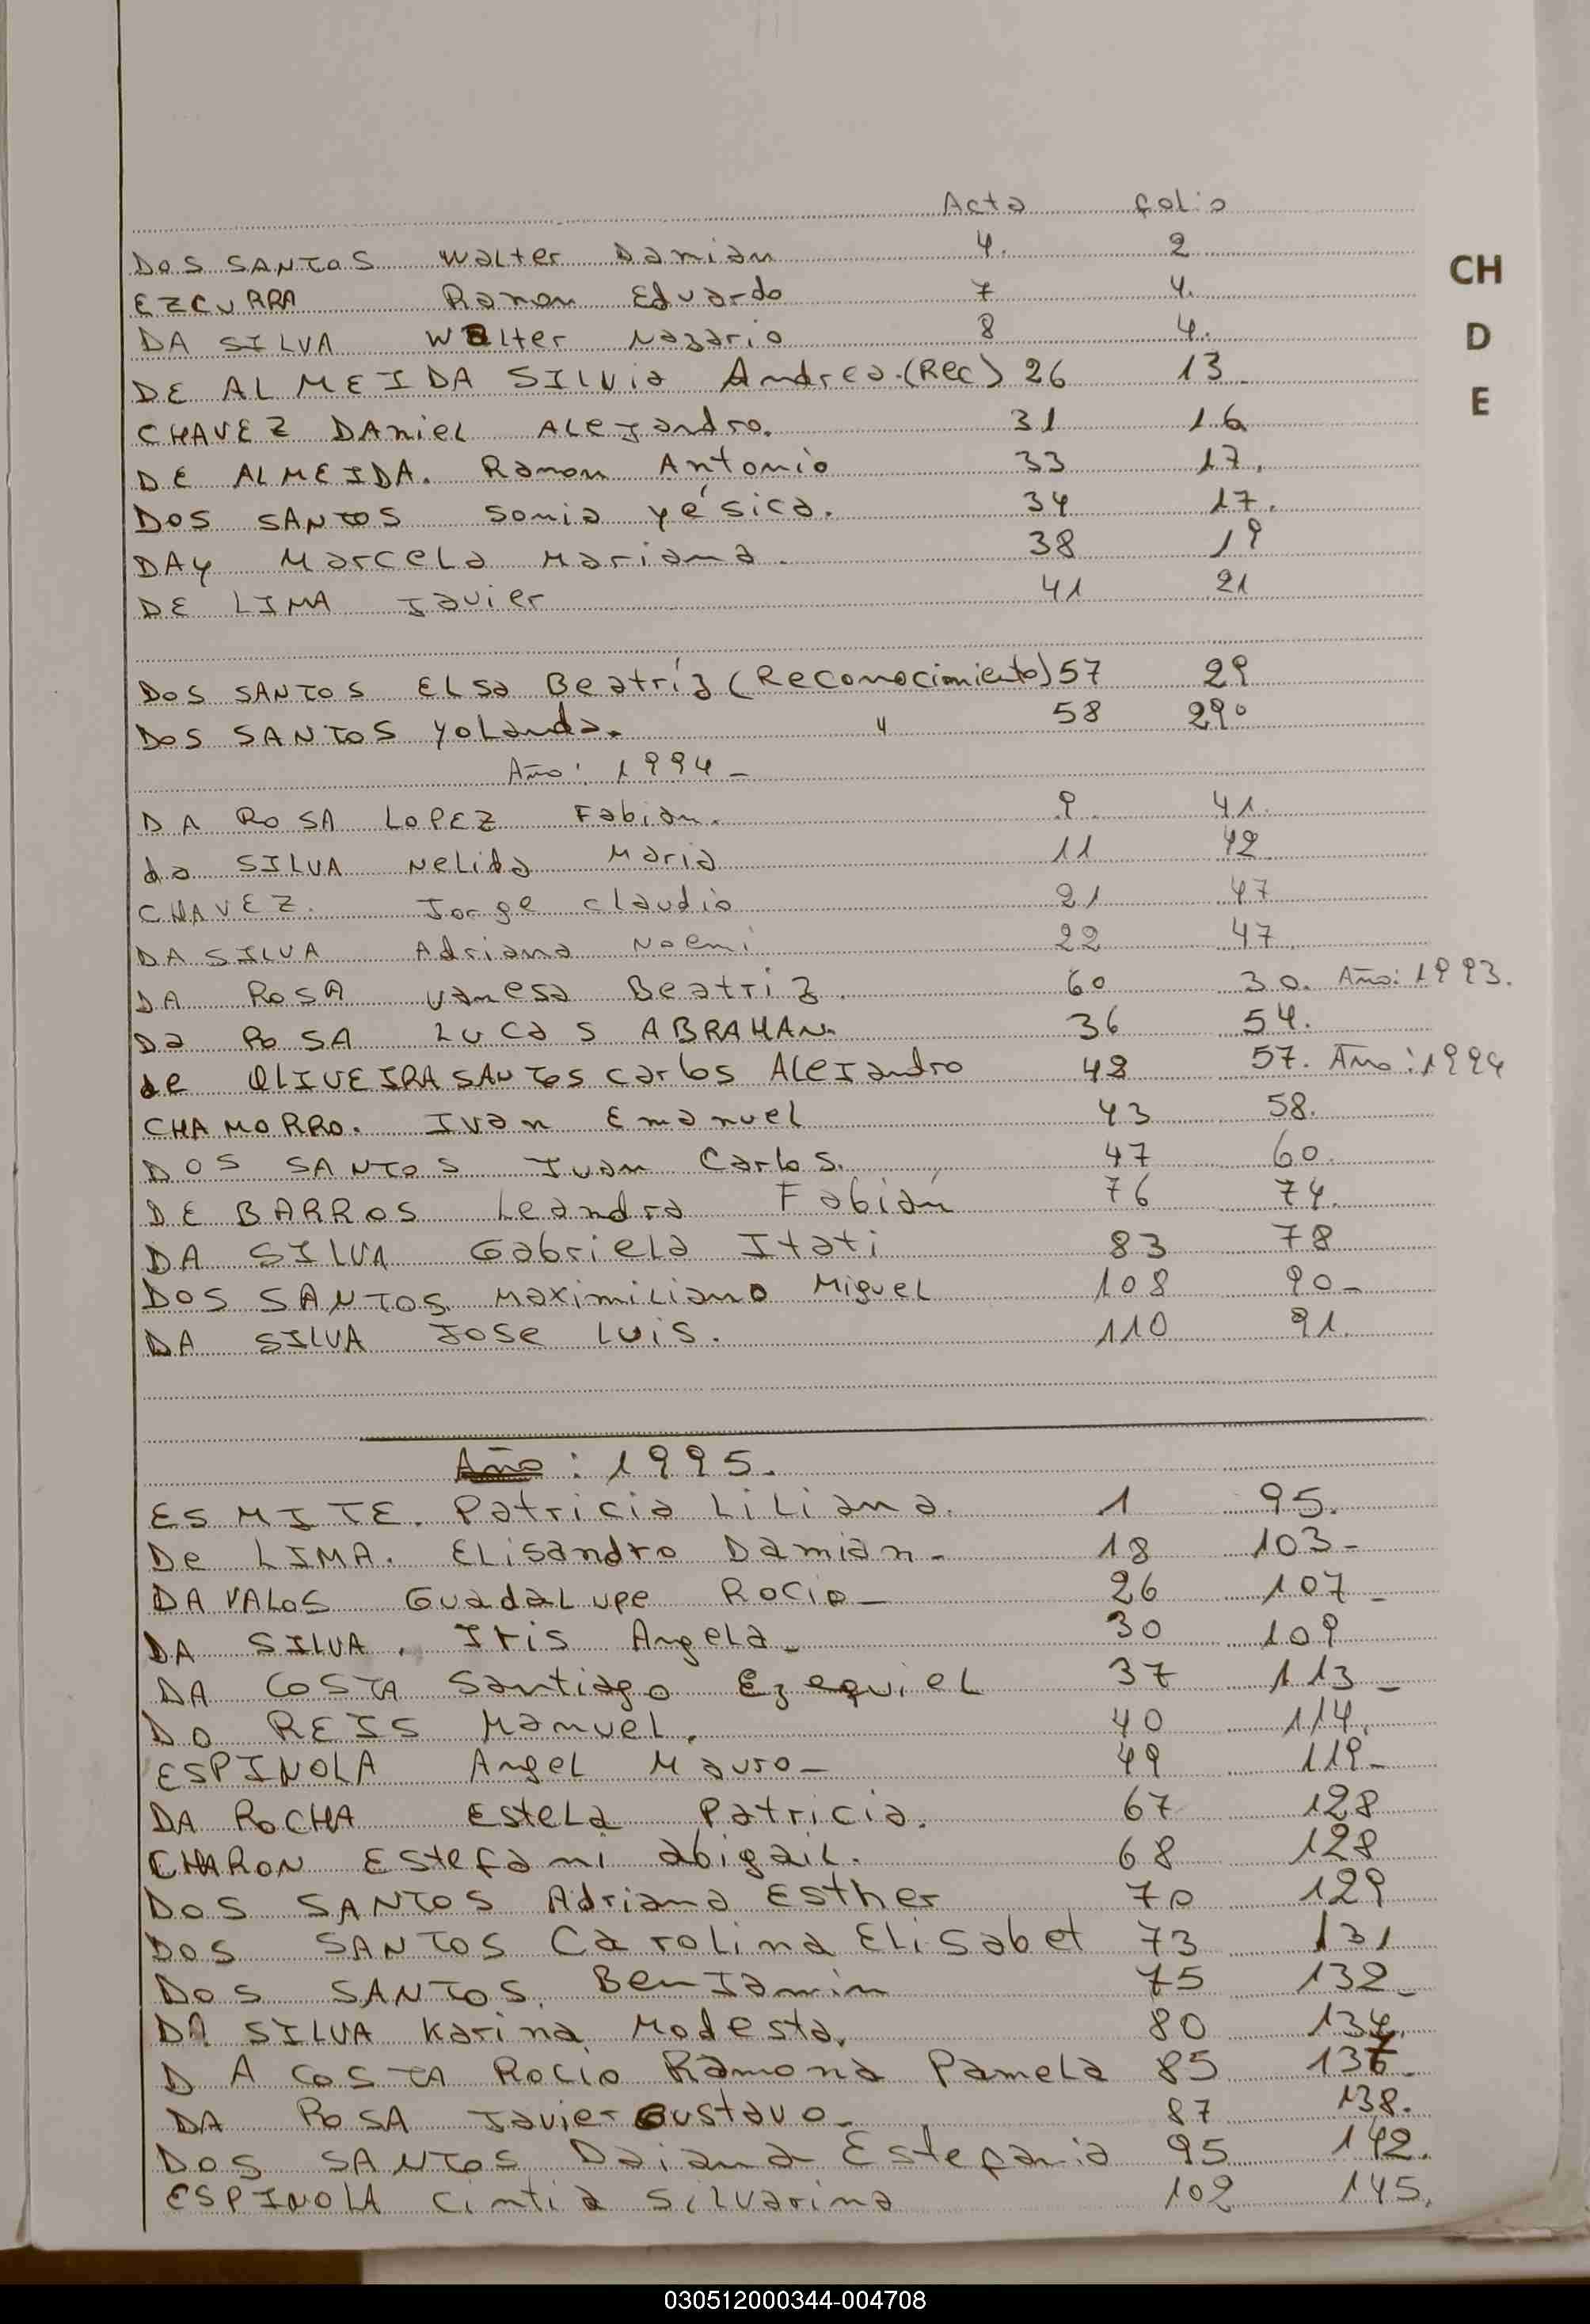 Acta folio
DOS SANTOS Walter Damian 4. 2
EZCURRA Ramon Eduardo 7 4.
DA SILVA Walter Nazario 8 4.
DE ALMEIDA SILVIA Andrea.(Rec) 26 13
CHAVEZ DANIEL ALEJandro. 31 16
DE ALMEIDA. Ramon Antonio 33 17.
DOS SANTOS Sonia yésica. 34 17.
DAY Marcela Mariana. 38 19
DE LIMA Javier 41 21
DOS SANTOS ELSA Beatríz (Reconocimiento) 57 29
DOS SANTOS YOLanda. " 58 29º
Año: 1994-
DA ROSA LOPEZ Fabian. 9. 41.
da SILVA Nelida Maria 11 42
CHAVEZ. Jorge claudio 21 47
DA SILVA Adriana Noemi 22 47
DA ROSA Vanesa Beatriz. 60 30. Año: 1993.
Da ROSA LUCAS ABRAHAN. 36 54.
de OLIVEIRA SANTOS carlos ALEJandro 42 57. Año: 1994
CHAMORRO. Ivan Emanuel 43 58.
DOS SANTOS Juan Carlos. 47 60.
DE BARROS Leandro Fabián 76 74.
DA SILVA Gabriela Itati 83 78
DOS SANTOS Maximiliano Miguel 108 90-
DA SILVA Jose Luis. 110 91.
Año: 1995.
ESMITE. Patricia Liliana. 1 95.
De LIMA. ELisandro Damian- 18 103-
DAVALOS Guadalupe Rocio- 26 107-
DA SILVA. Iris Angela- 30 109
DA COSTA Santiago Ezequiel 37 113-
DO REIS Manuel. 40 114.
ESPINOLA Angel Mauro- 49 119-
DA ROCHA Estela Patricia. 67 128
CHARON Estefani abigail. 68 128
DOS SANTOS Adriana Esther 70 129
DOS SANTOS Carolina Elisabet 73 131
DOS SANTOS. Benjamin 75 132-
DA SILVA Karina Modesta. 80 134.
DA COSTA Rocio Ramona Pamela 85 137-
DA ROSA Javier Gustavo- 87 138.
DOS SANTOS Daiana Estefania 95 142.
ESPINOLA Cintia Silvarina 102 145.
CH
D
E
030512000344-004708